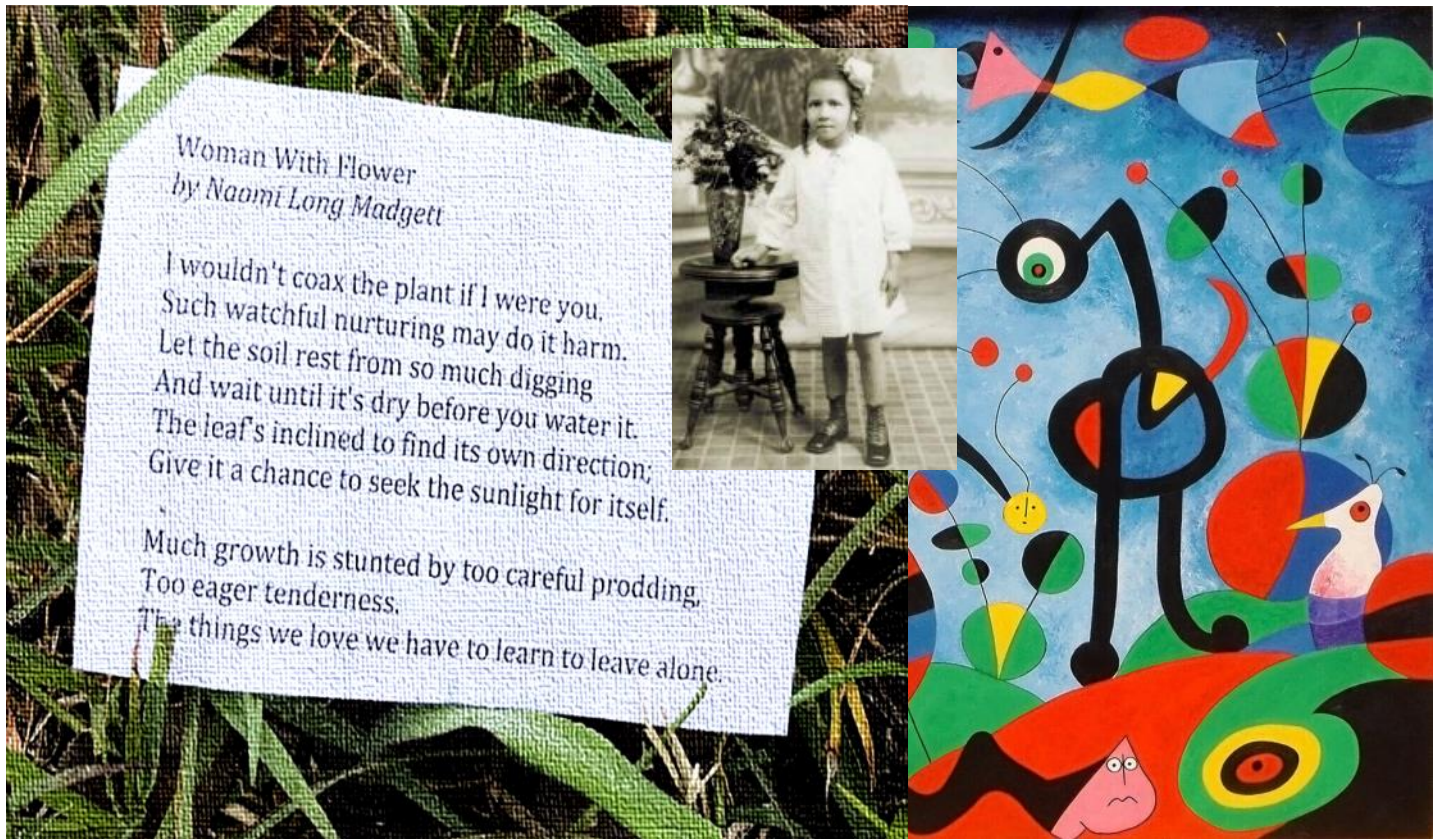 Woman With Flower
by Naomi Long Madgett
I wouldn't coax the plant if I were you.
Such watchful nurturing may do it harm.
Let the soil rest from so much digging
And wait until it's dry before you water it.
The leaf's inclined to find its own direction;
Give it a chance to seek the sunlight for itself.
Much growth is stunted by too careful prodding,
Too eager tenderness.
The things we love we have to learn to leave alone.